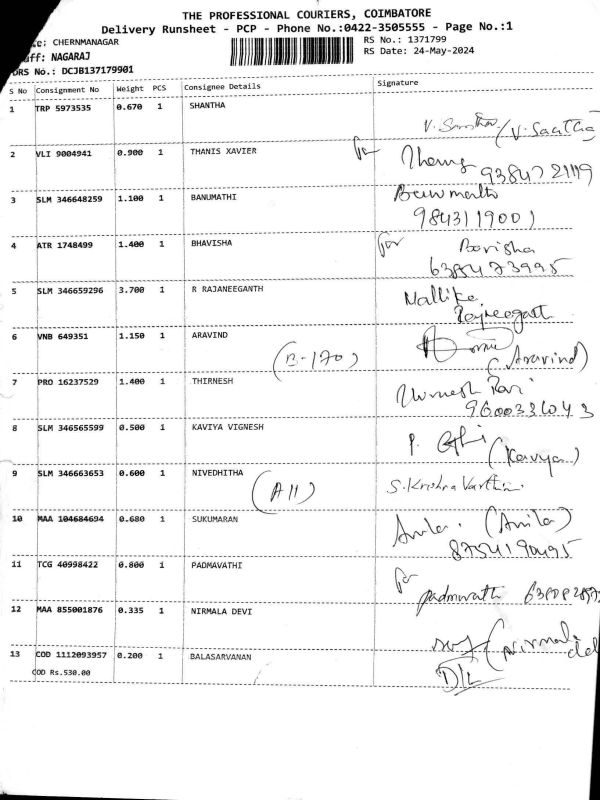 THE PROFESSIONAL COURIERS, COIMBATORE
Delivery Runsheet - PCP - Phone No.:0422-3505555 - Page No.:1
: CHERNMANAGAR
RS No.: 1371799
: NAGARAJ
RS Date: 24-May-2024
DRS No.: DCJB137179901
S No Consignment No Weight PCS Consignee Details Signature
1 TRP 5973535 0.670 1 SHANTHA
2 VLI 9004941 0.900 1 THANIS XAVIER for
3 SLM 346648259 1.100 1 BANUMATHI
9843119001
4 ATR 1748499 1.400 1 BHAVISHA for Barisha
6385473995
5 SLM 346659296 3.700 1 R RAJANEEGANTH Mallika
6 VNB 649351 1.150 1 ARAVIND
(B-170) (Aravind)
7 PRO 16237529 1.400 1 THIRNESH
8 SLM 346565599 0.500 1 KAVIYA VIGNESH
(Kavya)
9 SLM 346663653 0.600 1 NIVEDHITHA
(A11)
10 MAA 104684694 0.680 1 SUKUMARAN (Amila)
8754190495
11 TCG 40998422 0.800 1 PADMAVATHI for
12 MAA 855001876 0.335 1 NIRMALA DEVI
13 COD 1112093957 0.200 1 BALASARVANAN D/L
COD Rs.530.00